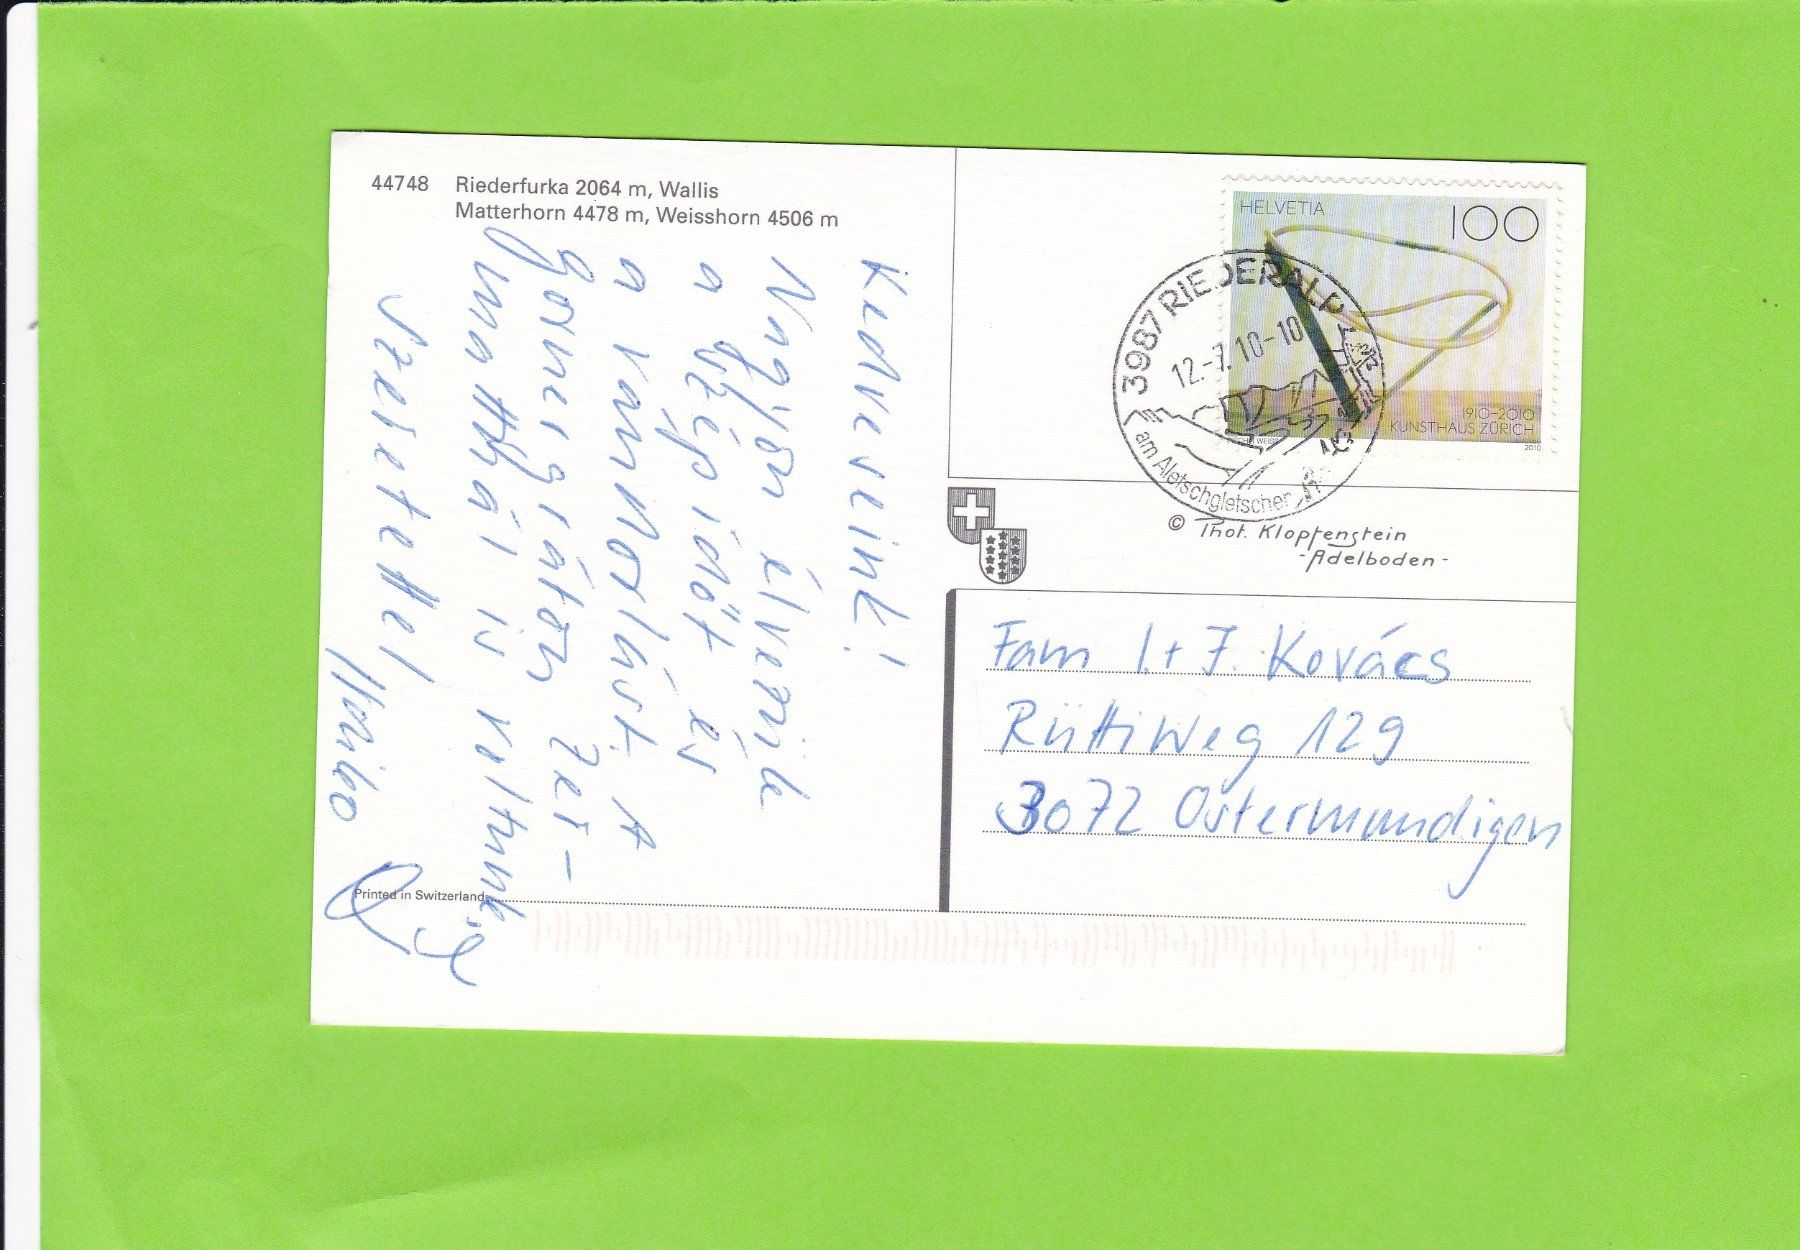 44748 Riederfurka 2064 m, Wallis
Matterhorn 4478 m, Weisshorn 4506 m
Kedveseink!
Nagyon élvezzük
a szép időt és
a vándorlást. A
Gornergráton Zer-
matthál is voltunk.
Szeretettel
Printed in Switzerland
HELVETIA
100
1910–2010
KUNSTHAUS ZÜRICH
2010
3987 RIEDERALP
12.-7.10-10
am Aletschgletscher
© Phot. Klopfenstein
-Adelboden-
Fam I.+J. Kovács
Rüttiweg 129
3072 Ostermundigen